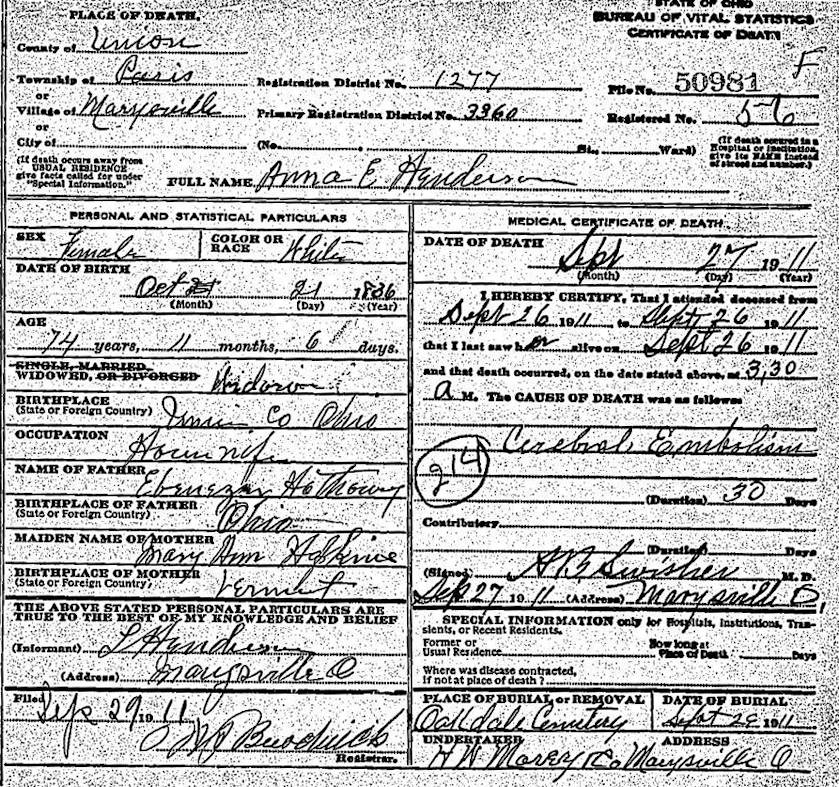 PLACE OF DEATH.
STATE OF OHIO
BUREAU OF VITAL STATISTICS
CERTIFICATE OF DEATH
County of Union
F
Township of Paris
Registration District No. 1277
File No. 50981
or
Village of Marysville
Primary Registration District No. 3360
Registered No. 56
or
City of
(No. St., Ward)
(If death occured in a Hospital or Institution, give its NAME instead of street and number.)
(If death occurs away from USUAL RESIDENCE give facts called for under "Special Information.")
FULL NAME Anna E Henderson
PERSONAL AND STATISTICAL PARTICULARS
SEX Female
COLOR OR RACE White
DATE OF BIRTH
Oct 21 1836
(Month) (Day) (Year)
AGE
74 years, 11 months, 6 days.
SINGLE, MARRIED,
WIDOWED, OR DIVORCED Widow
BIRTHPLACE
(State or Foreign Country) Union Co Ohio
OCCUPATION
Housewife
NAME OF FATHER
Ebenezer Hathaway
BIRTHPLACE OF FATHER
(State or Foreign Country) Ohio
MAIDEN NAME OF MOTHER
Mary Ann Hopkins
BIRTHPLACE OF MOTHER
(State or Foreign Country) Vermont
THE ABOVE STATED PERSONAL PARTICULARS ARE
TRUE TO THE BEST OF MY KNOWLEDGE AND BELIEF
(Informant) L Henderson
(Address) Marysville O
Filed Sep 29 1911
Registrar.
MEDICAL CERTIFICATE OF DEATH
DATE OF DEATH
Sept 27 1911
(Month) (Day) (Year)
I HEREBY CERTIFY, That I attended deceased from
Sept 26 1911 to Sept 26 1911
that I last saw her alive on Sept 26 1911
and that death occurred, on the date stated above, at 3,30
a M. The CAUSE OF DEATH was as follows
Cerebral Embolism
214
(Duration) 30 Days
Contributory
(Duration) Days
(Signed) Swisher M. D.
Sep 27 1911 (Address) Marysville O,
SPECIAL INFORMATION only for Hospitals, Institutions, Transients, or Recent Residents.
Former or
Usual Residence
How long at
Place of Death Days
Where was disease contracted,
If not at place of death?
PLACE OF BURIAL or REMOVAL
Oakdale Cemetery
DATE OF BURIAL
Sept 29 1911
UNDERTAKER
Morey & Co
ADDRESS
Marysville O